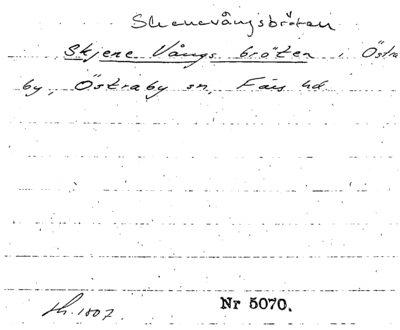 Skenevångsbråten
Skjene Vångs bråten i Östra
by, Östraby sn, Färs hd
sk. 1807. Nr 5070.